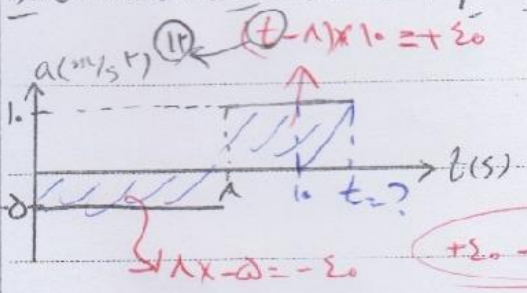 (t-۸)×۱۰=+۴۰
۱۲
a(m/s۲)
۱۰
-۵
۸
۱۰
t=?
t(s)
۸×-۵=-۴۰
+۴۰ -